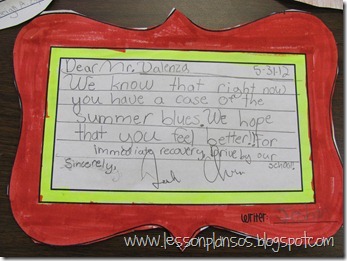 Dear Mr. Valenza
5-31-12
We know that right now
you have a case of the
summer blues. We hope
that you feel better!! For
Immediate recovery, Drive by our
school.
Sincerely,
Writer
www.lessonplansos.blogspot.com